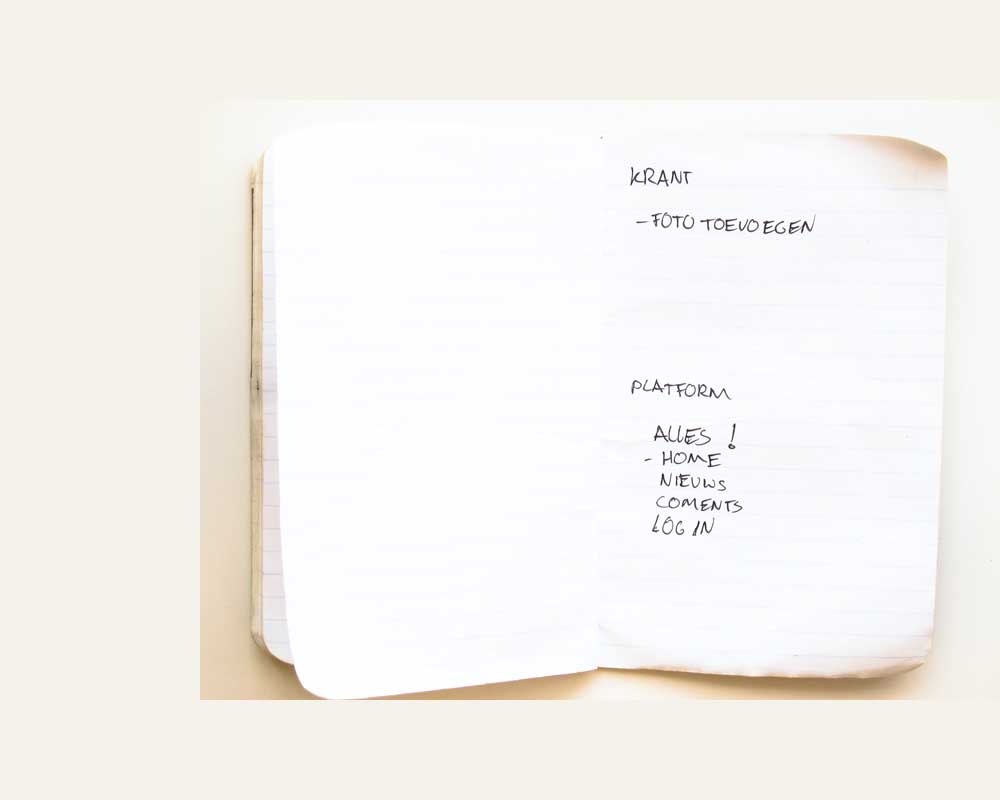 KRANT
- FOTO TOEVOEGEN
PLATFORM
ALLES !
- HOME
NIEUWS
COMENTS
LOG IN